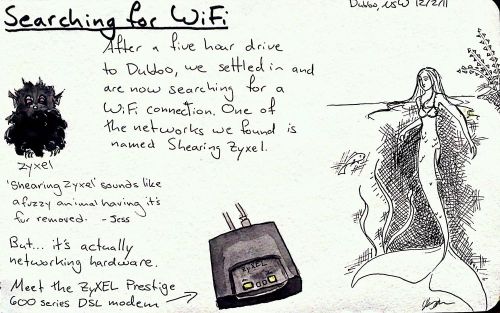 Searching for WiFi
Dubbo, NSW 12/2/11
After a five hour drive
to Dubbo, we settled in and
are now searching for a
WiFi connection. One of
the networks we found is
named Shearing Zyxel.
Zyxel
'Shearing Zyxel' sounds like
a fuzzy animal having it's
fur removed. - Jess
But... it's actually
networking hardware.
Meet the ZyXEL Prestige
600 series DSL modem
ZyXEL